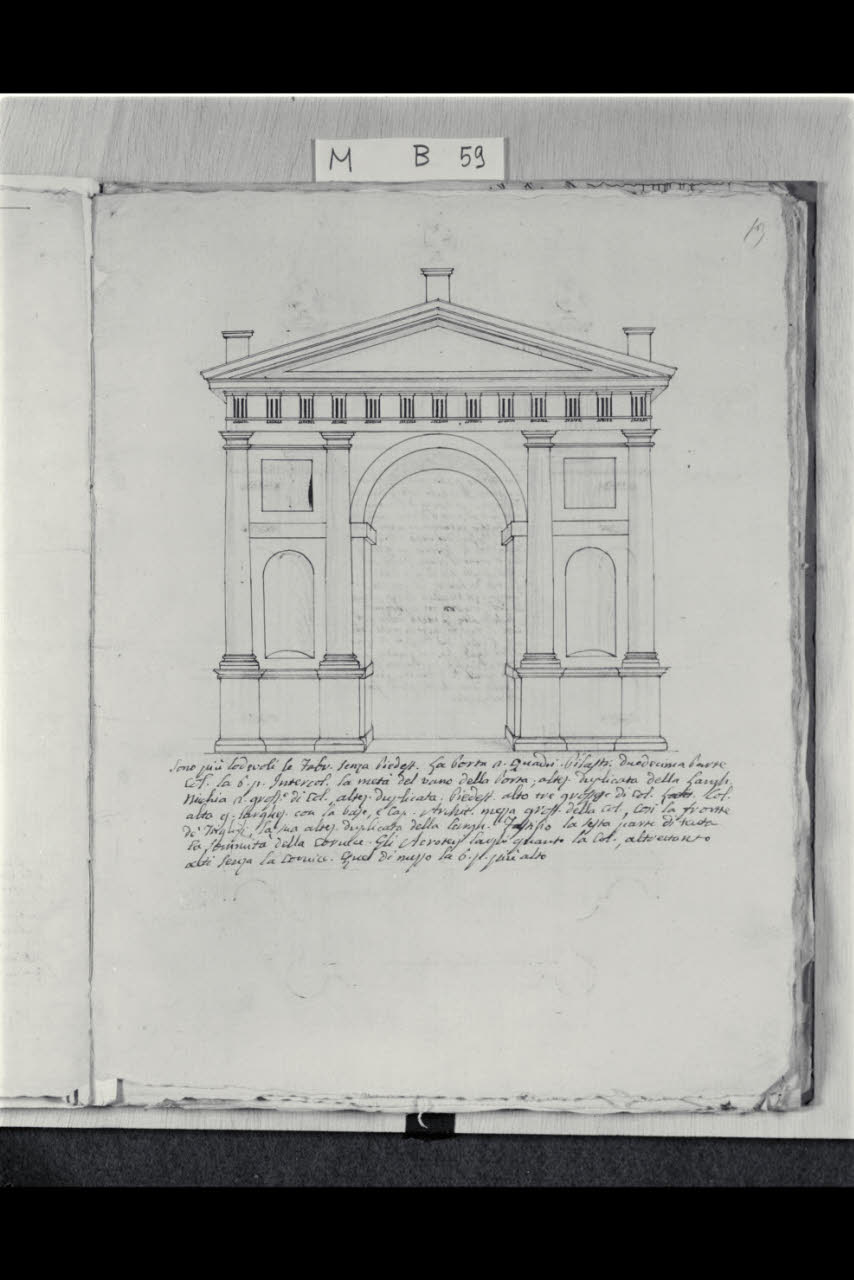 M B 59
13
Sono più lodevoli le Fabr. senza piedest. La porta 2. Quadri. Pilastr. duodecima parte
Col. la 6. p. Intercol. la metà del vano della Porta, altez. duplicata della largh.
Nichia 2. gross.e di Col. altez. duplicata. Piedest. alto tre grossezze di Col. Col.
alta 9. larghez. con la base, e Cap. Archit. meza gross. della Col., così la fronte
de' Trigl., la sua altez. duplicata della largh. la sesta parte di tutta
la della Cornice. Gli Acroterj larghi quanto la Col., altretanto
alti senza la Cornice. Quel di mezzo la 6. p. più alto